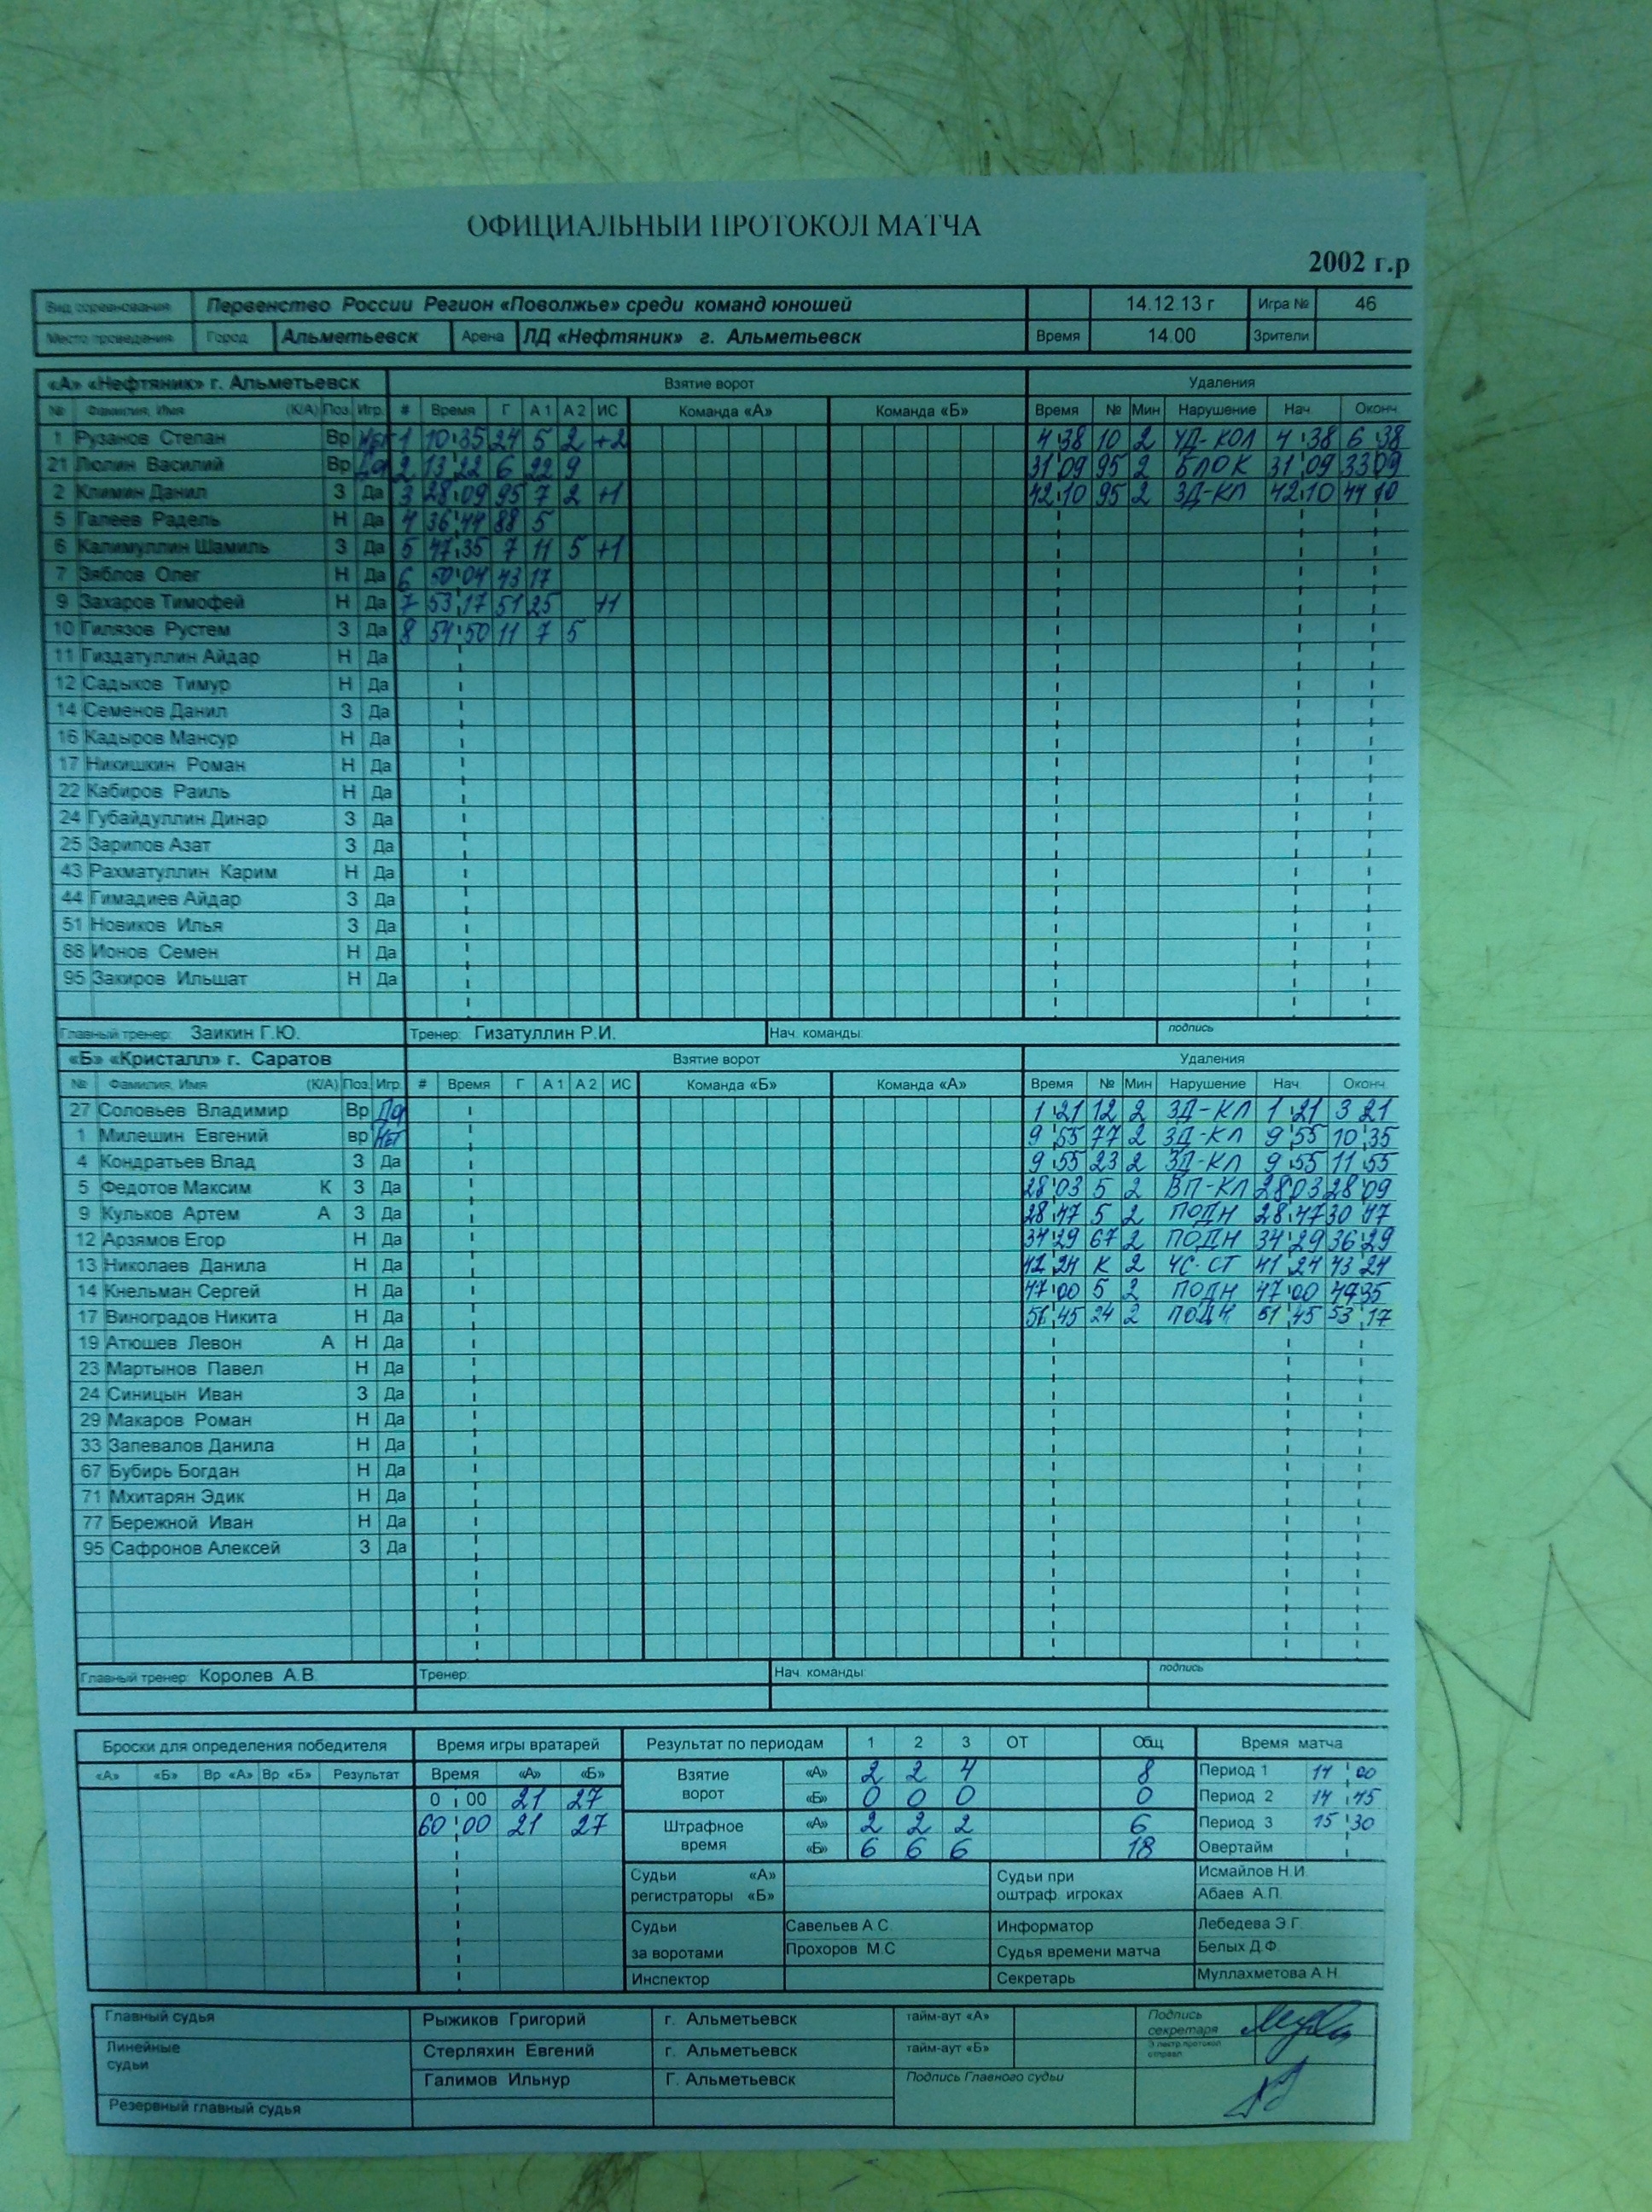 ОФИЦИАЛЬНЫЙ ПРОТОКОЛ МАТЧА
2002 г.р
Вид соревнования Первенство России Регион «Поволжье» среди команд юношей 14.12.13 г Игра № 46
Место проведения Город Альметьевск Арена ЛД «Нефтяник» г. Альметьевск Время 14.00 Зрители
«А» «Нефтяник» г. Альметьевск Взятие ворот Удаления
№ Фамилия, Имя (К/А) Поз. Игр. # Время Г А 1 А 2 ИС Команда «А» Команда «Б» Время № Мин Нарушение Нач. Оконч.
1 Рузанов Степан Вр Нет 1 10:35 24 5 2 +2 4:38 10 2 УД-КОЛ 4:38 6:38
21 Люлин Василий Вр Да 2 13:22 6 22 9 31:09 95 2 БЛОК 31:09 33:09
2 Климин Данил З Да 3 28:09 95 7 2 +1 42:10 95 2 ЗД-КЛ 42:10 44:10
5 Галеев Радель Н Да 4 36:44 88 5
6 Калимуллин Шамиль З Да 5 47:35 7 11 5 +1
7 Зяблов Олег Н Да 6 50:04 43 17
9 Захаров Тимофей Н Да 7 53:17 51 25 +1
10 Гилязов Рустем З Да 8 54:50 11 7 5
11 Гиздатуллин Айдар Н Да
12 Садыков Тимур Н Да
14 Семенов Данил З Да
16 Кадыров Мансур Н Да
17 Никишкин Роман Н Да
22 Кабиров Раиль Н Да
24 Губайдуллин Динар З Да
25 Зарипов Азат З Да
43 Рахматуллин Карим Н Да
44 Гимадиев Айдар З Да
51 Новиков Илья З Да
88 Ионов Семен Н Да
95 Закиров Ильшат Н Да
Главный тренер: Заикин Г.Ю. Тренер: Гизатуллин Р.И. Нач. команды: подпись
«Б» «Кристалл» г. Саратов Взятие ворот Удаления
№ Фамилия, Имя (К/А) Поз. Игр. # Время Г А 1 А 2 ИС Команда «Б» Команда «А» Время № Мин Нарушение Нач. Оконч.
27 Соловьев Владимир Вр Да 1:21 12 2 ЗД-КЛ 1:21 3:21
1 Милешин Евгений вр Нет 9:55 77 2 ЗД-КЛ 9:55 10:35
4 Кондратьев Влад З Да 9:55 23 2 ЗД-КЛ 9:55 11:55
5 Федотов Максим К З Да 28:03 5 2 ВП-КЛ 28:03 28:09
9 Кульков Артем А З Да 28:47 5 2 ПОДН 28:47 30:47
12 Арзямов Егор Н Да 34:29 67 2 ПОДН 34:29 36:29
13 Николаев Данила Н Да 41:24 К 2 ЧС-СТ 41:24 43:24
14 Кнельман Сергей Н Да 47:00 5 2 ПОДН 47:00 47:35
17 Виноградов Никита Н Да 51:45 24 2 ПОДН 51:45 53:17
19 Атюшев Левон А Н Да
23 Мартынов Павел Н Да
24 Синицын Иван З Да
29 Макаров Роман Н Да
33 Запевалов Данила Н Да
67 Бубирь Богдан Н Да
71 Мхитарян Эдик Н Да
77 Бережной Иван Н Да
95 Сафронов Алексей З Да
Главный тренер: Королев А.В. Тренер: Нач. команды: подпись
Броски для определения победителя Время игры вратарей Результат по периодам 1 2 3 ОТ Общ Время матча
«А» «Б» Вр «А» Вр «Б» Результат Время «А» «Б» Взятие ворот «А» 2 2 4 8 Период 1 14:00
0:00 21 27 «Б» 0 0 0 0 Период 2 14:45
60:00 21 27 Штрафное время «А» 2 2 2 6 Период 3 15:30
«Б» 6 6 6 18 Овертайм
Судьи «А» Судьи при Исмайлов Н.И.
регистраторы «Б» оштраф. игроках Абаев А.П.
Судьи Савельев А.С. Информатор Лебедева Э.Г.
за воротами Прохоров М.С Судья времени матча Белых Д.Ф.
Инспектор Секретарь Муллахметова А.Н.
Главный судья Рыжиков Григорий г. Альметьевск тайм-аут «А» Подпись секретаря
Линейные судьи Стерляхин Евгений г. Альметьевск тайм-аут «Б»
Галимов Ильнур Г. Альметьевск Подпись Главного судьи
Резервный главный судья